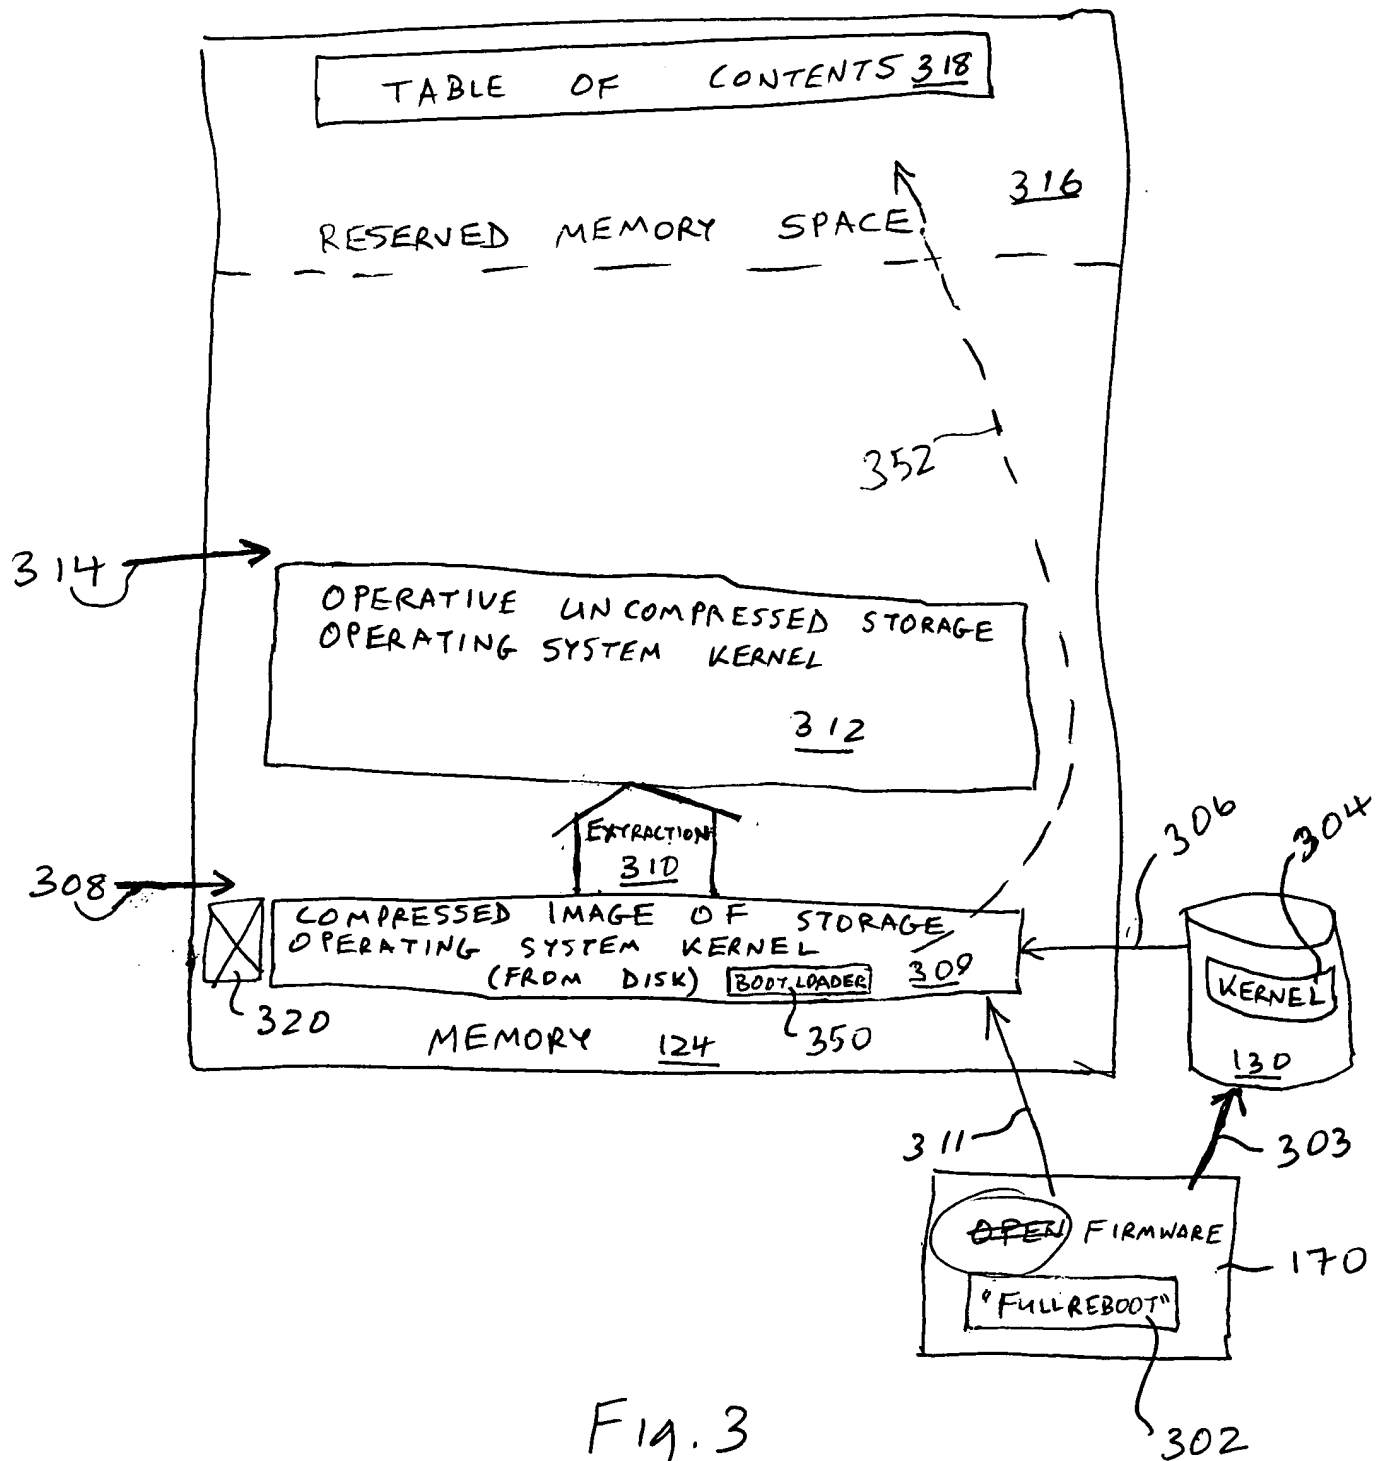 TABLE OF CONTENTS 318
316
RESERVED MEMORY SPACE
352
314
OPERATIVE UNCOMPRESSED STORAGE
OPERATING SYSTEM KERNEL
312
306
304
EXTRACTION
310
308
COMPRESSED IMAGE OF STORAGE
OPERATING SYSTEM KERNEL
(FROM DISK) BOOT LOADER 309
KERNEL
320
MEMORY 124
350
130
311
303
OPEN FIRMWARE
170
"FULL REBOOT"
Fig. 3
302